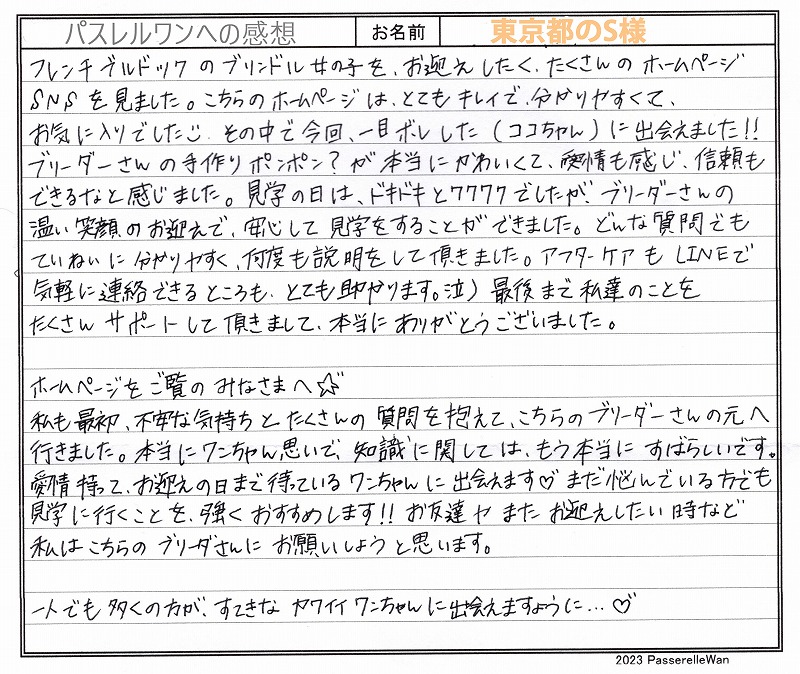 パスレルワンへの感想 お名前 東京都のS様
フレンチブルドックのブリンドル女の子を、お迎えしたく、たくさんのホームページ
SNSを見ました。こちらのホームページは、とてもキレイで、分かりやすくて、
お気に入りでした その中で今回、一目ボレした(ココちゃん)に出会えました!!
ブリーダーさんの手作りポンポン?が本当にかわいくて、愛情も感じ、信頼も
できるなと感じました。見学の日は、ドキドキとワクワクでしたが、ブリーダーさんの
温い笑顔のお迎えで、安心して見学をすることができました。どんな質問でも
ていねいに分かりやすく、何度も説明をして頂きました。アフターケアもLINEで
気軽に連絡できるところも、とても助かります。泣)最後まで私達のことを
たくさんサポートして頂きまして、本当にありがとうございました。
ホームページをご覧のみなさまへ☆
私も最初、不安な気持ちとたくさんの質問を抱えて、こちらのブリーダーさんの元へ
行きました。本当にワンちゃん思いで、知識に関しては、もう本当にすばらしいです。
愛情持って、お迎えの日まで待っているワンちゃんに出会えます♡まだ悩んでいる方でも
見学に行くことを、強くおすすめします!!お友達やまたお迎えしたい時など
私はこちらのブリーダさんにお願いしようと思います。
一人でも多くの方が、すてきなカワイイワンちゃんに出会えますように…♡
2023 PasserelleWan